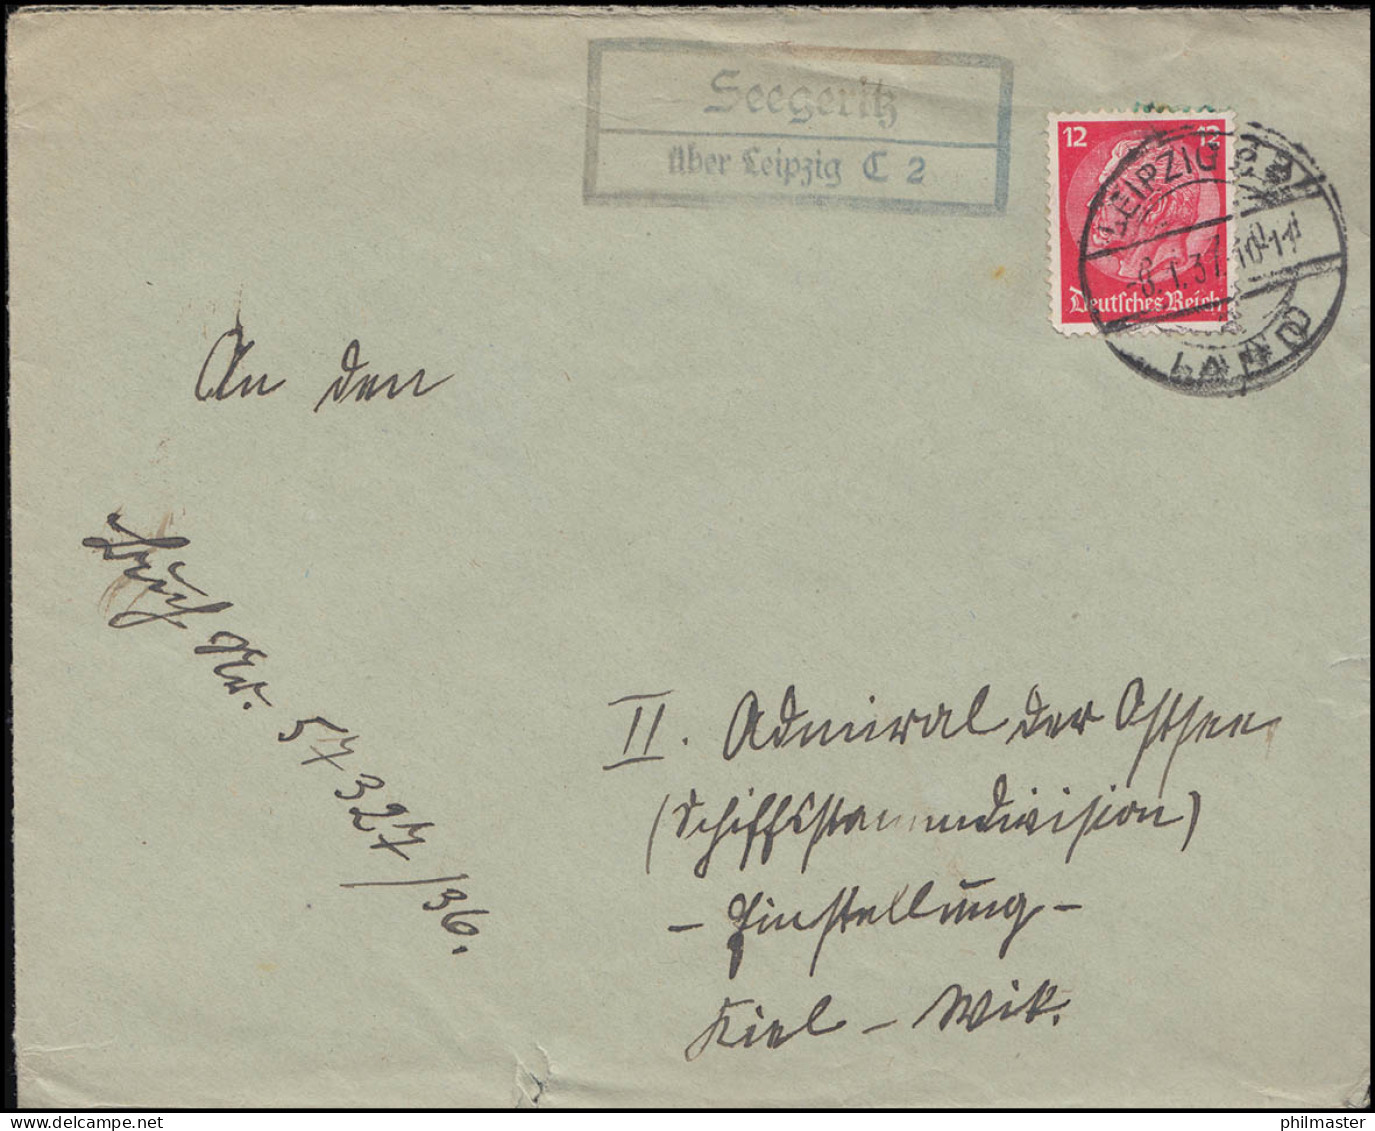 Seegeritz
über Leipzig C 2
12 12
Deutsches Reich
LEIPZIG C 2
-8.1.37.10-11
LAND
An den
Buch Nr. 57327/36.
II. Admiral der Ostsee
(Schiffsstammdivision)
- Einstellung -
Kiel - Wik.
philmaster